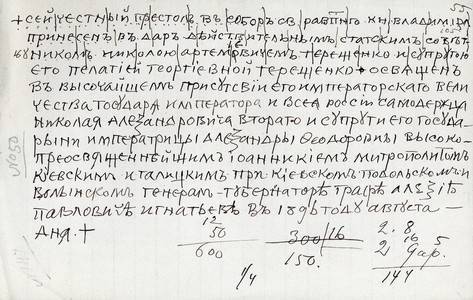 + сей честный престолъ въ соборъ св. равнопр. кн. владиміра
принесенъ въ даръ дѣйствительнымъ статскимъ совѣт-
никомъ николою артемьевичемъ терещенко и супругою
его пелагіей георгіевной терещенко + освященъ
въ высочайшемъ присутсвіи его императорскаго вели-
чества государя императора и всея россіи самодержца
николая александровича втораго и супруги его госуда-
рыни императрицы александры ѳеодоровны высоко-
преосвященнѣйшимъ іоанникіемъ митрополитомъ
кіевскимъ и галицкимъ при кіевскомъ подольскомъ и
волынскомъ генерал-губернаторѣ графѣ алексіѣ
павловичѣ игнатьевѣ въ 1896 году августа —
дня. +
12
50
600
300/16
150.
1/4
2. 8
16 5
2 9 ар.
144
№50